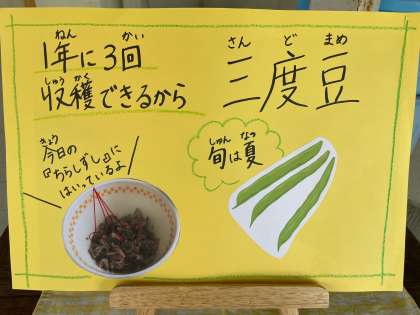 1年に3回
収穫できるから
三度豆
旬は夏
今日の
『ちらしずし』に
はいっているよ